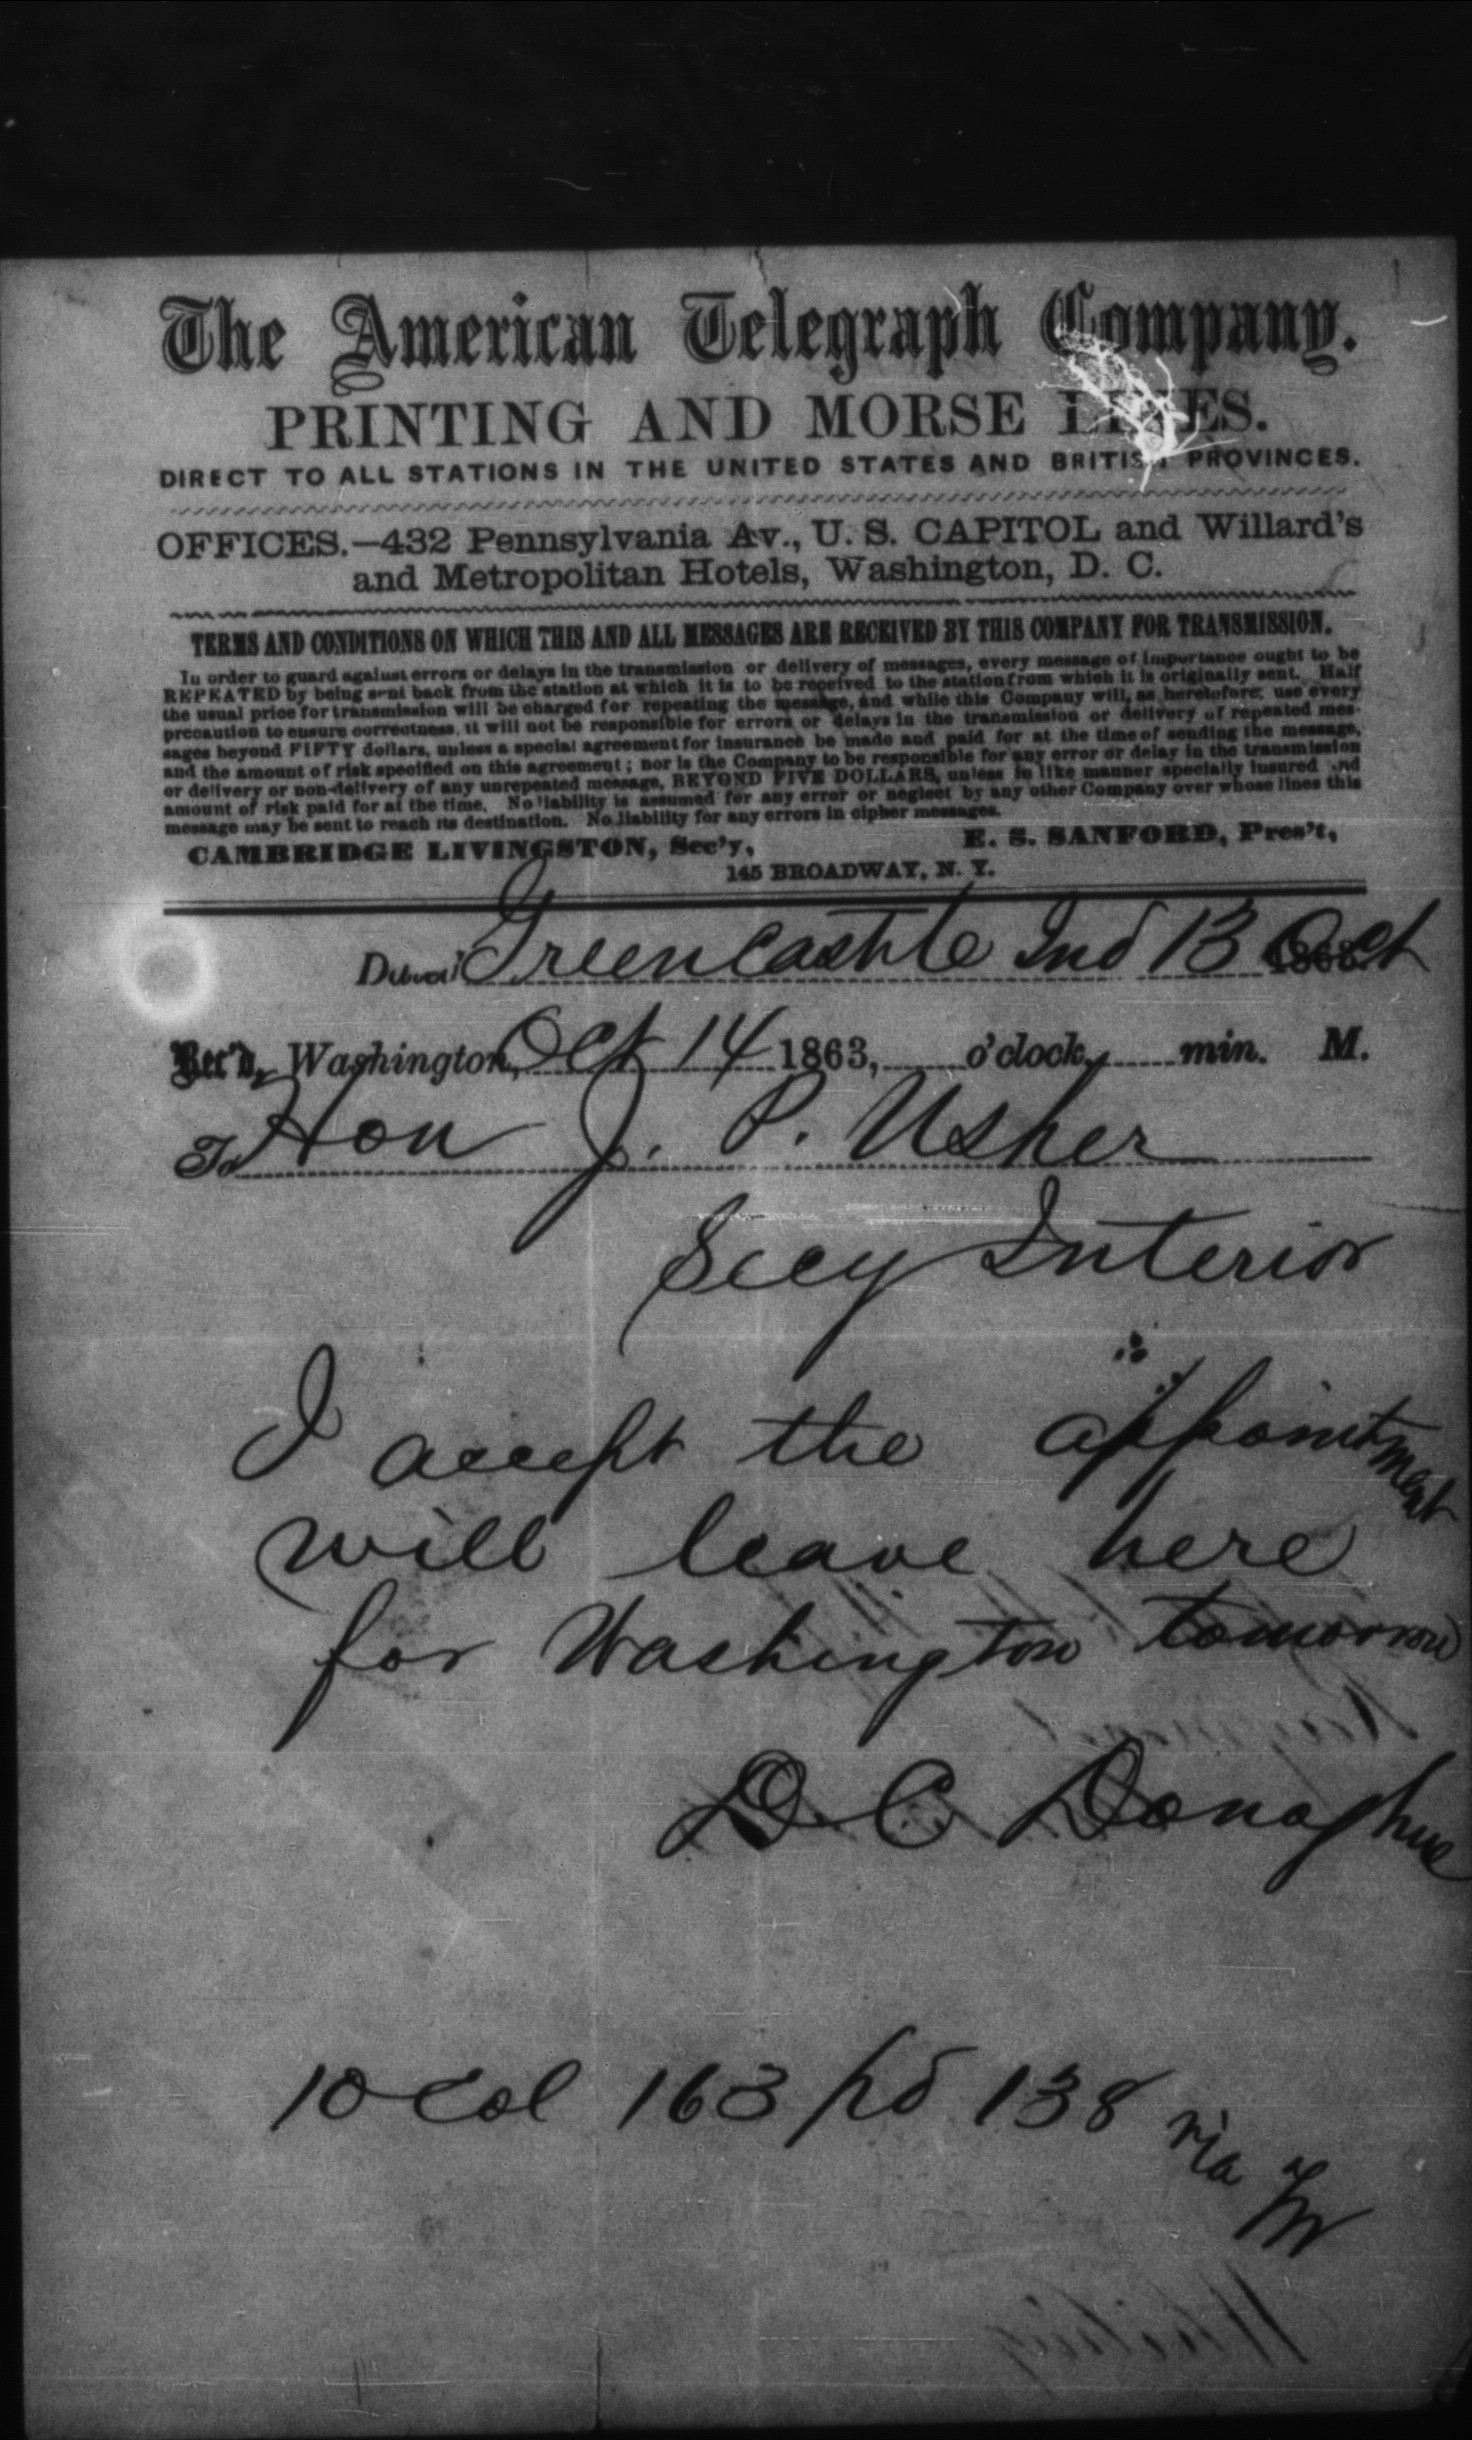 The American Telegraph Company.
PRINTING AND MORSE LINES.
DIRECT TO ALL STATIONS IN THE UNITED STATES AND BRITISH PROVINCES.
OFFICES.—432 Pennsylvania Av., U. S. CAPITOL and Willard's
and Metropolitan Hotels, Washington, D. C.
TERMS AND CONDITIONS ON WHICH THIS AND ALL MESSAGES ARE RECEIVED BY THIS COMPANY FOR TRANSMISSION.
In order to guard against errors or delays in the transmission or delivery of messages, every message of importance ought to be
REPEATED by being sent back from the station at which it is to be received to the station from which it is originally sent. Half
the usual price for transmission will be charged for repeating the message, and while this Company will, as heretofore, use every
precaution to ensure correctness, it will not be responsible for errors or delays in the transmission or delivery of repeated mes-
sages beyond FIFTY dollars, unless a special agreement for insurance be made and paid for at the time of sending the message,
and the amount of risk specified on this agreement; nor is the Company to be responsible for any error or delay in the transmission
or delivery or non-delivery of any unrepeated message, BEYOND FIVE DOLLARS, unless in like manner specially insured and
amount of risk paid for at the time. No liability is assumed for any error or neglect by any other Company over whose lines this
message may be sent to reach its destination. No liability for any errors in cipher messages.
CAMBRIDGE LIVINGSTON, Sec'y, E. S. SANFORD, Pres't,
145 BROADWAY, N. Y.
Dated Greencastle Ind 13 Oct 1863.
Rec'd, Washington, Oct 14 1863, o'clock, min. M.
To Hon J. P. Usher
Secy Interior
I accept the appointment
will leave here
for Washington tomorrow
D C Donaghue
10 Col 163 pd 138 via